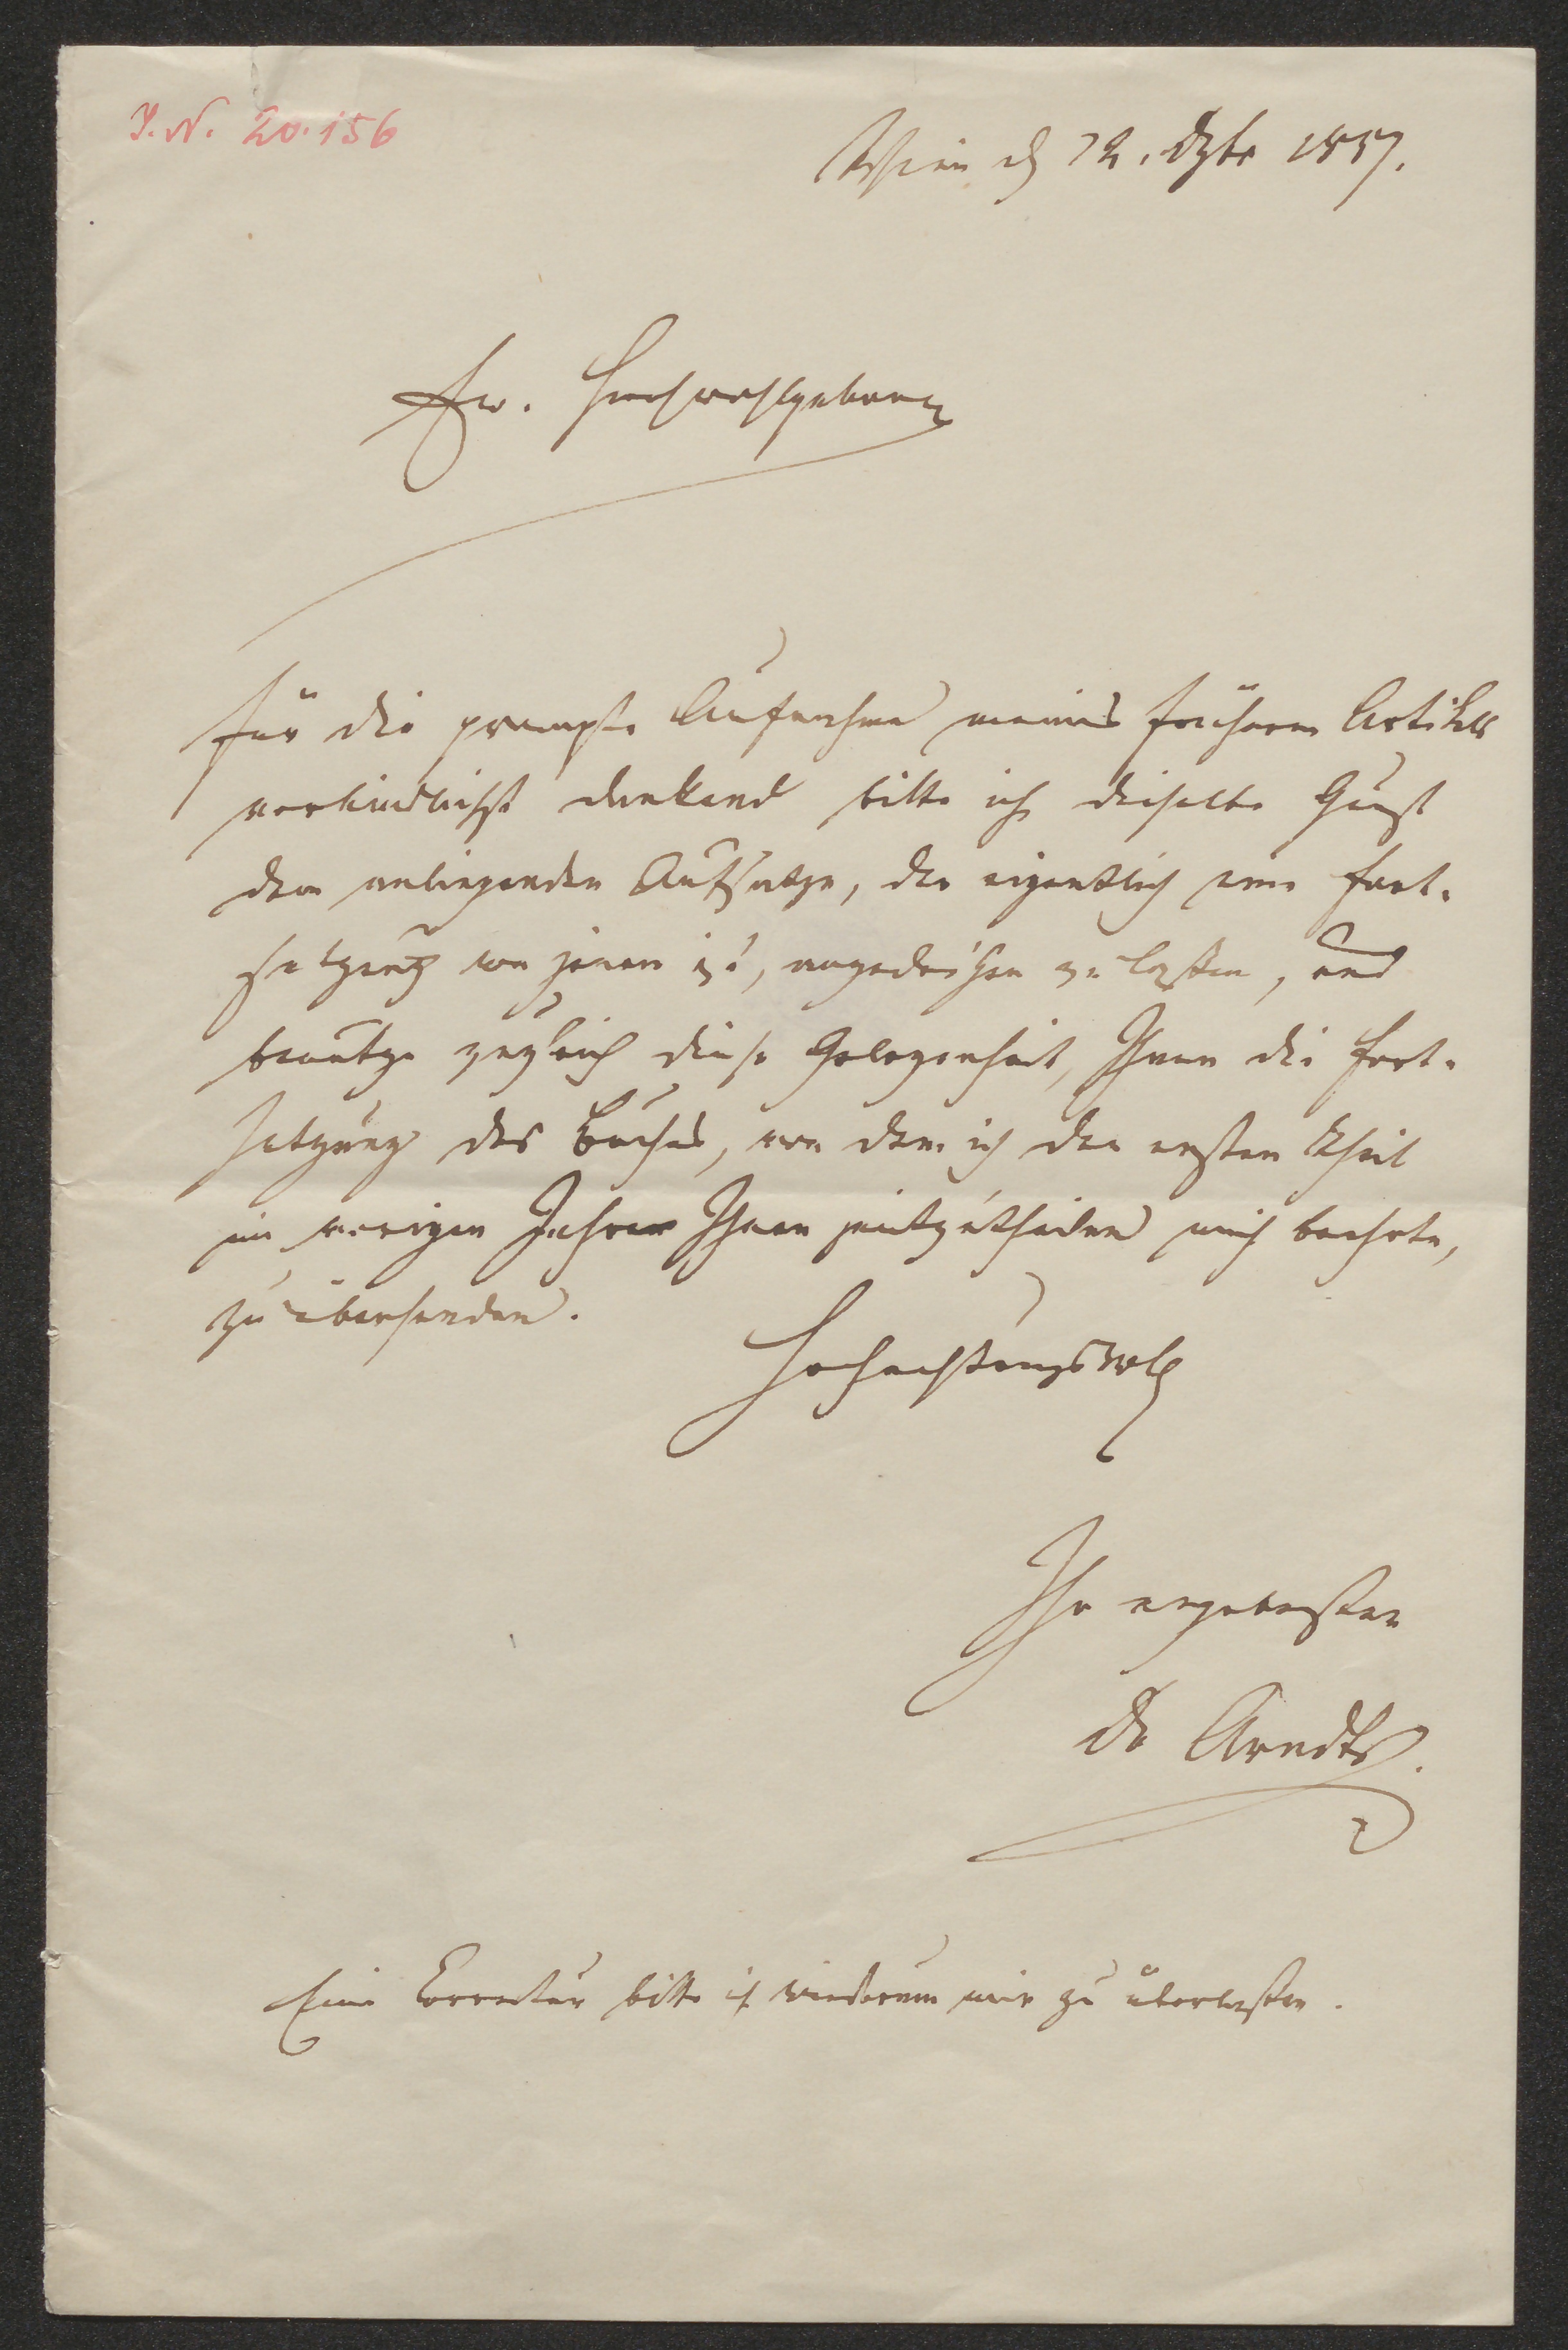 I. N. 20.156
Wien d 12. Dzbr 1857.
Ew. Hochwohlgeboren
Für die prompte Aufnahme meines früheren Artikels
verbindlichst dankend bitte ich dieselbe Gunst
dem anliegenden Aufsatze, der eigentlich eine Fort-
setzung von jenem ist, angedeihen zu lassen, und
benutze zugleich diese Gelegenheit, Ihnen die Fort-
setzung des Buches, von dem ich den ersten Theil
im vorigen Jahre Ihnen mitzutheilen mich beehrte,
zu übersenden.
Hochachtungsvoll
Ihr ergebenster
Dr Arndts.
Eine Correctur bitte ich wiederum mir zu überlassen.